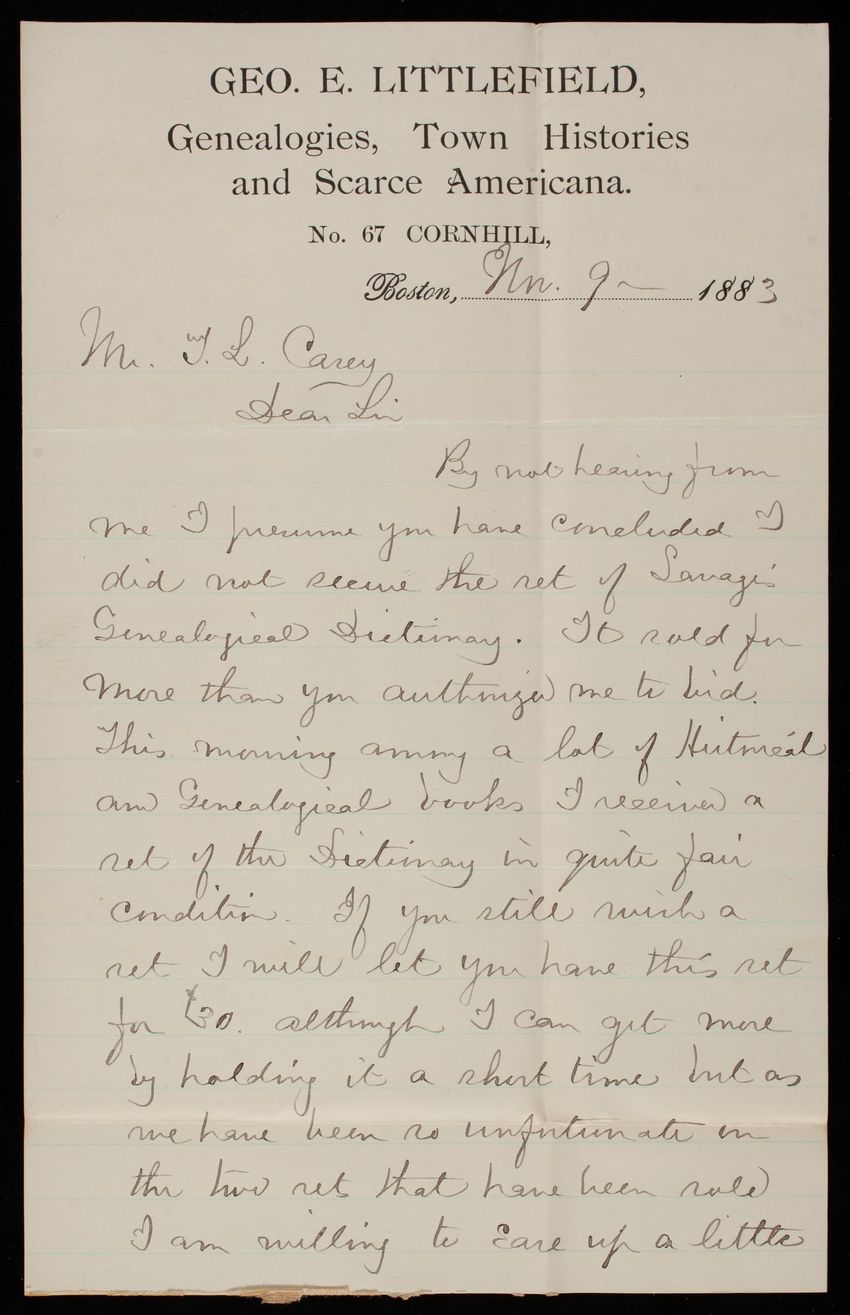 GEO. E. LITTLEFIELD,
Genealogies, Town Histories
and Scarce Americana.
No. 67 CORNHILL,
Boston, Nov. 9 — 1883
Mr. T. L. Casey
Dear Sir
By not hearing from
me I presume you have concluded I
did not secure the set of Savage's
Genealogical Dictionary. It sold for
more than you authorized me to bid.
This morning among a lot of Historical
and Genealogical books I received a
set of the Dictionary in quite fair
condition. If you still wish a
set I will let you have this set
for $30. although I can get more
by holding it a short time but as
we have been so unfortunate on
the two sets that have been sold
I am willing to ease up a little